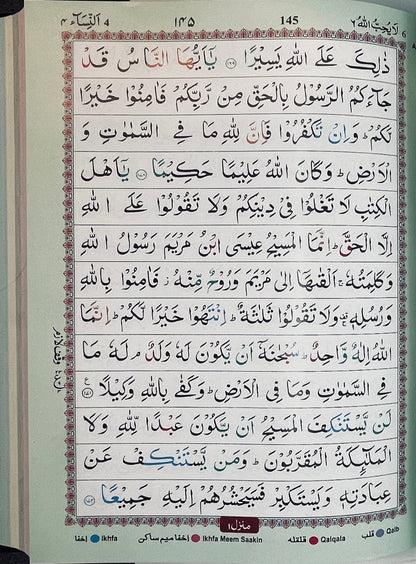 النسآء ٤ 4 ١٤٥ 145 لا يحب الله ٦ 6
ذٰلِكَ عَلَى اللّٰهِ يَسِيْرًا ﴿۱۶۹﴾ يٰۤاَيُّهَا النَّاسُ قَدْ
جَآءَكُمُ الرَّسُوْلُ بِالْحَقِّ مِنْ رَّبِّكُمْ فَاٰمِنُوْا خَيْرًا
لَّكُمْ ؕ وَاِنْ تَكْفُرُوْا فَاِنَّ لِلّٰهِ مَا فِى السَّمٰوٰتِ وَ
الْاَرْضِ ؕ وَكَانَ اللّٰهُ عَلِيْمًا حَكِيْمًا ﴿۱۷۰﴾ يٰۤاَهْلَ
الْكِتٰبِ لَا تَغْلُوْا فِىْ دِيْنِكُمْ وَلَا تَقُوْلُوْا عَلَى اللّٰهِ
اِلَّا الْحَقَّ ؕ اِنَّمَا الْمَسِيْحُ عِيْسَى ابْنُ مَرْيَمَ رَسُوْلُ اللّٰهِ
وَكَلِمَتُهٗ ۚ اَلْقٰهَاۤ اِلٰى مَرْيَمَ وَرُوْحٌ مِّنْهُ ؗ فَاٰمِنُوْا بِاللّٰهِ
وَرُسُلِهٖ ۚ وَلَا تَقُوْلُوْا ثَلٰثَةٌ ؕ اِنْتَهُوْا خَيْرًا لَّكُمْ ؕ اِنَّمَا
اللّٰهُ اِلٰهٌ وَّاحِدٌ ؕ سُبْحٰنَهٗۤ اَنْ يَّكُوْنَ لَهٗ وَلَدٌ ۘ لَهٗ مَا
فِى السَّمٰوٰتِ وَمَا فِى الْاَرْضِ ؕ وَكَفٰى بِاللّٰهِ وَكِيْلًا ﴿۱۷۱﴾ ع
لَنْ يَّسْتَنْكِفَ الْمَسِيْحُ اَنْ يَّكُوْنَ عَبْدًا لِّلّٰهِ وَلَا
الْمَلٰٓئِكَةُ الْمُقَرَّبُوْنَ ؕ وَمَنْ يَّسْتَنْكِفْ عَنْ
عِبَادَتِهٖ وَيَسْتَكْبِرْ فَسَيَحْشُرُهُمْ اِلَيْهِ جَمِيْعًا ﴿۱۷۲﴾
منزل ١
اخفا Ikhfa اخفا میم ساکن Ikhfa Meem Saakin قلقله Qalqala قلب Qalb